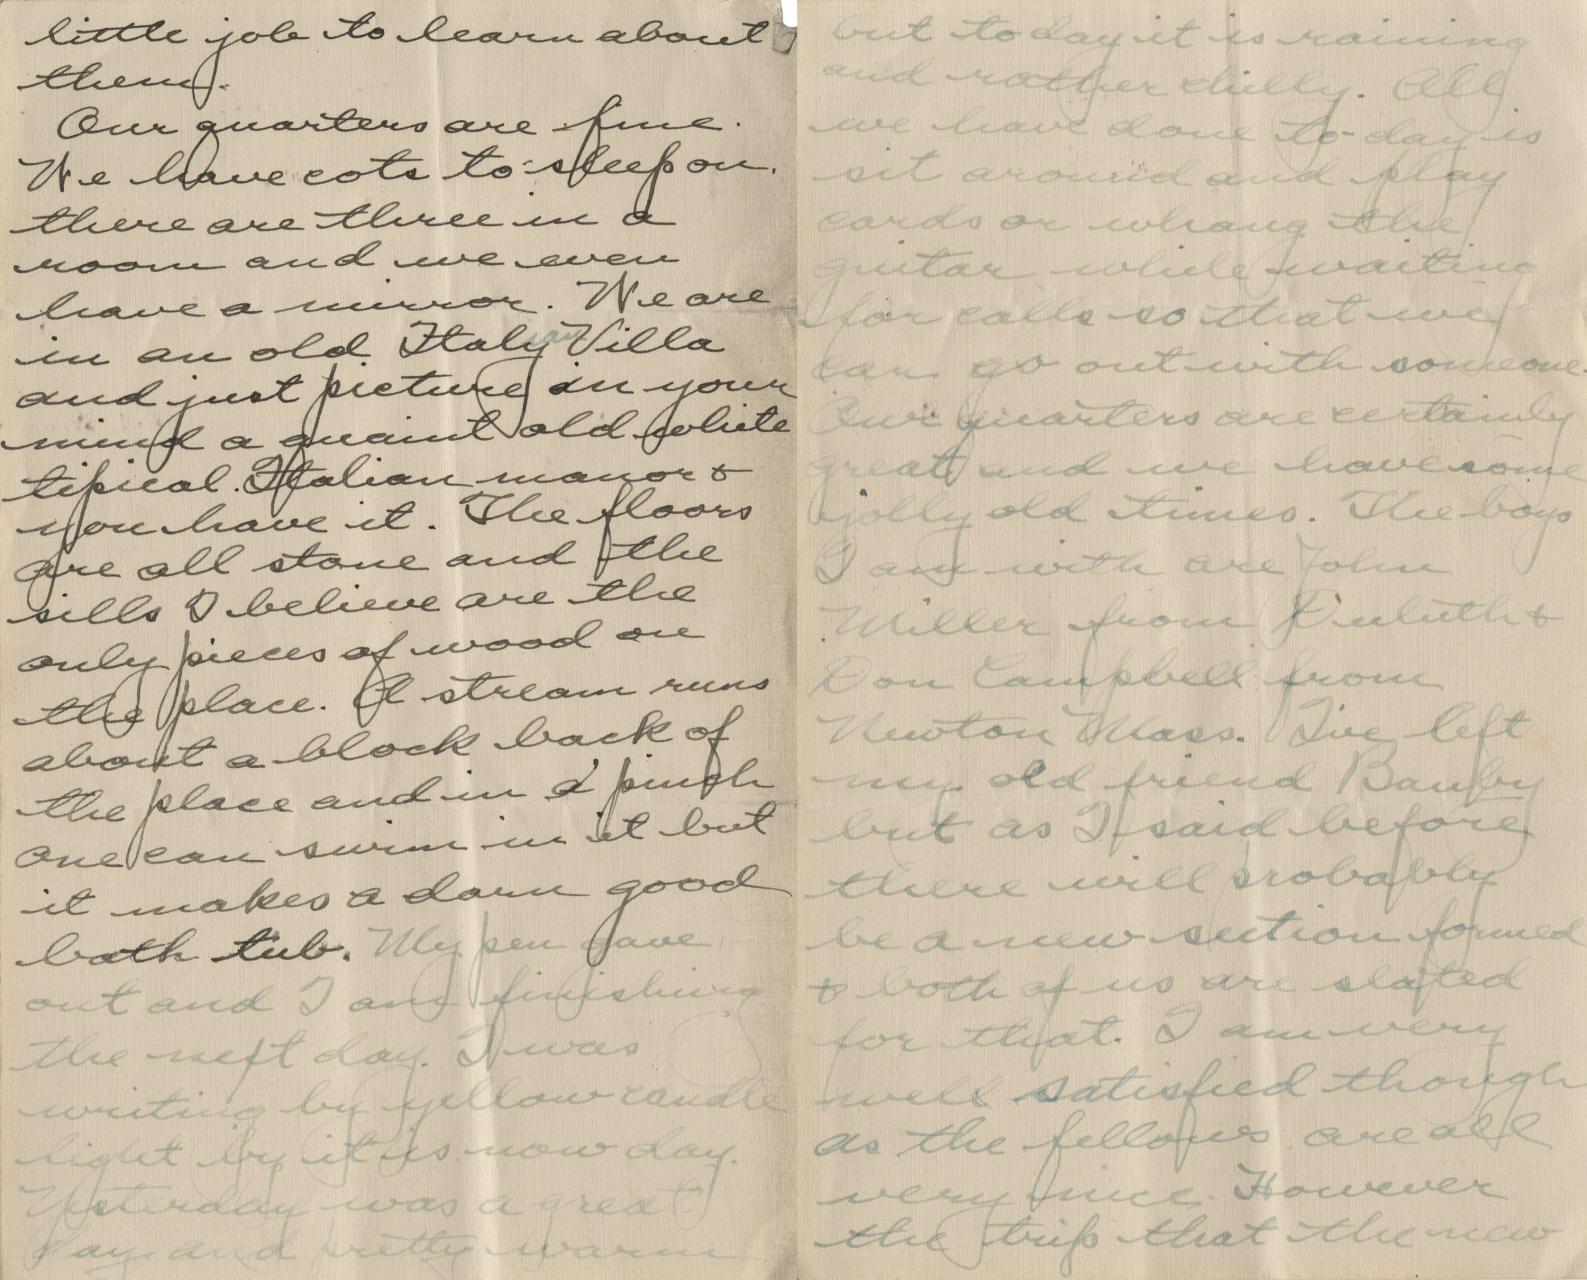 little job to learn about
them.
Our quarters are fine.
We have cots to sleep on.
there are three in a
room and we even
have a mirror. We are
in an old Italy Villa
and just picture in your
mind a quaint old white
tipical Italian manor &
you have it. The floors
are all stone and the
sills I believe are the
only pieces of wood on
the place. A stream runs
about a block back of
the place and in a pinch
one can swim in it but
it makes a darn good
bath tub. My pen gave
out and I am finishing
the next day. I was
writing by yellow candle
light by it is now day.
Yesterday was a great
day and pretty warm
but today it is raining
and rather chilly. All
we have done to-day is
sit around and play
cards or whang the
guitar while waiting
for calls so that we
can go out with someone.
Our quarters are certainly
great and we have some
jolly old times. The boys
I am with are John
Miller from Duluth &
Don Campbell from
Newton Mass. I've left
my old friend
but as I said before
there will probably
be a new section formed
& both of us are slated
for that. I am very
well satisfied though
as the fellows are all
very nice. However
the trip that the new